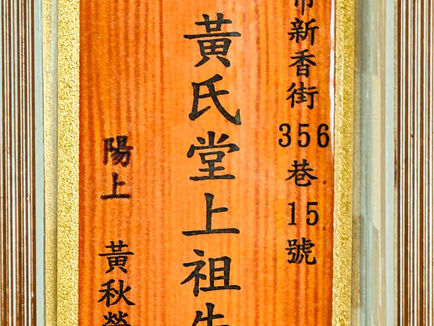 市新香街356巷15號
黃氏堂上祖先
陽上 黃秋